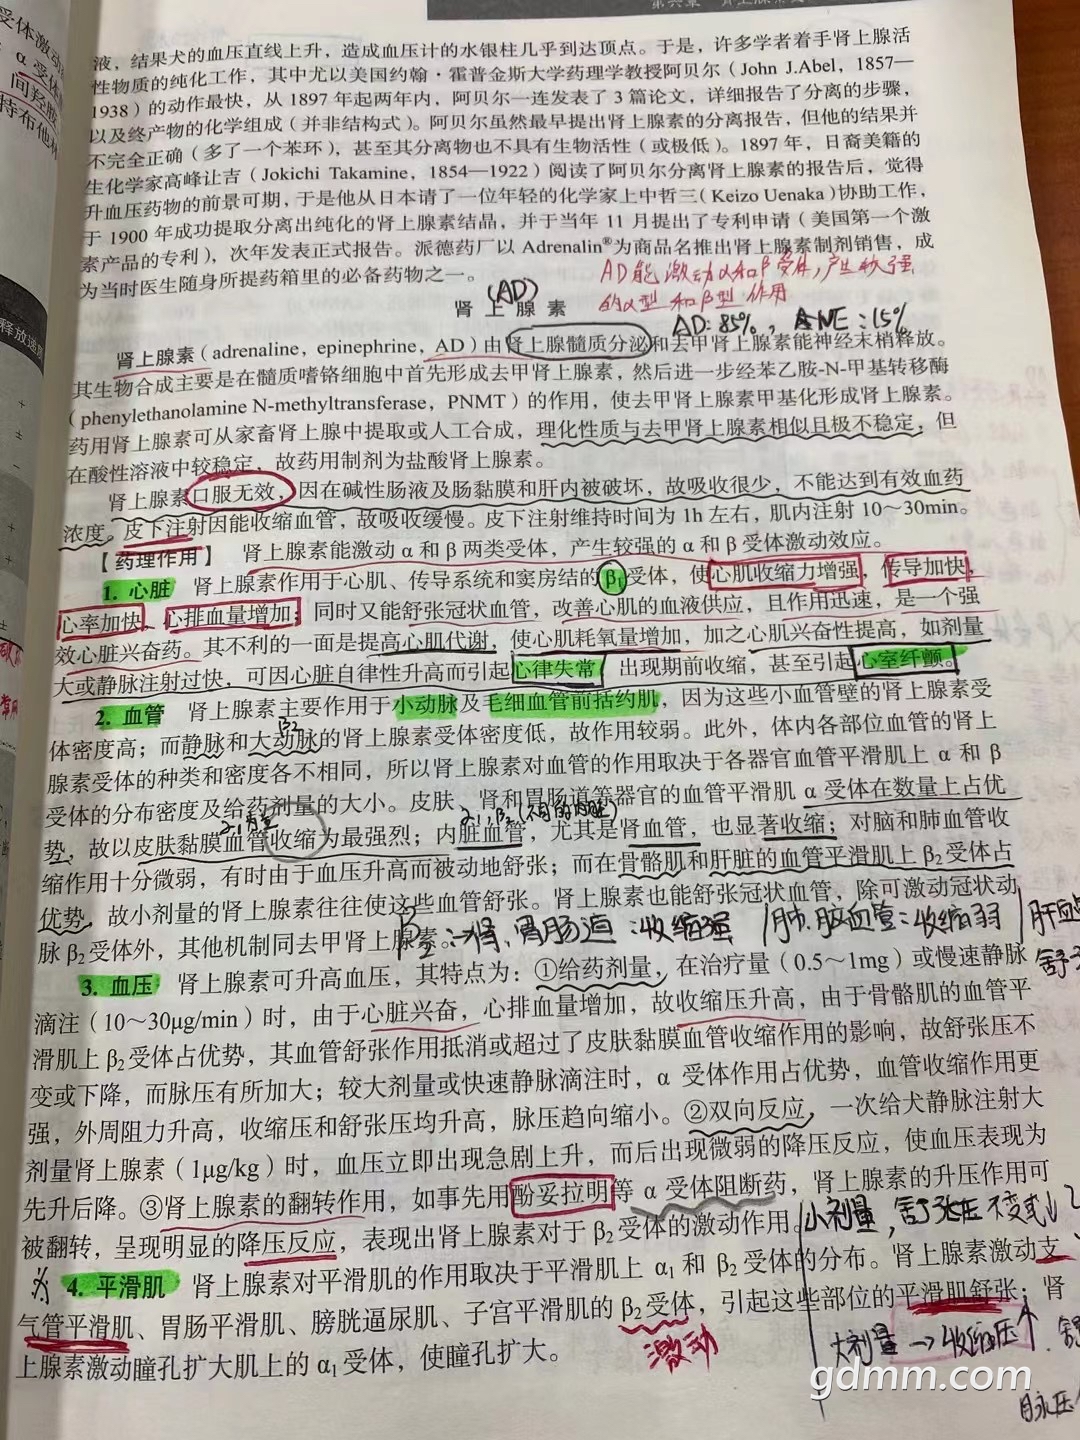 第六章
受体激动
α 受体
间羟胺
释放递质
液，结果犬的血压直线上升，造成血压计的水银柱几乎到达顶点。于是，许多学者着手肾上腺活
性物质的纯化工作，其中尤以美国约翰·霍普金斯大学药理学教授阿贝尔（John J.Abel，1857—
1938）的动作最快，从 1897 年起两年内，阿贝尔一连发表了 3 篇论文，详细报告了分离的步骤，
以及终产物的化学组成（并非结构式）。阿贝尔虽然最早提出肾上腺素的分离报告，但他的结果并
不完全正确（多了一个苯环），甚至其分离物也不具有生物活性（或极低）。1897 年，日裔美籍的
生化学家高峰让吉（Jokichi Takamine，1854—1922）阅读了阿贝尔分离肾上腺素的报告后，觉得
升血压药物的前景可期，于是他从日本请了一位年轻的化学家上中哲三（Keizo Uenaka）协助工作，
于 1900 年成功提取分离出纯化的肾上腺素结晶，并于当年 11 月提出了专利申请（美国第一个激
素产品的专利），次年发表正式报告。派德药厂以 Adrenalin®为商品名推出肾上腺素制剂销售，成
为当时医生随身所提药箱里的必备药物之一。
AD能激动α和β受体，产生较强
的α型和β型作用
(AD)
肾上腺素
AD：85%，NE：15%
肾上腺素（adrenaline，epinephrine，AD）由肾上腺髓质分泌和去甲肾上腺素能神经末梢释放。
其生物合成主要是在髓质嗜铬细胞中首先形成去甲肾上腺素，然后进一步经苯乙胺-N-甲基转移酶
（phenylethanolamine N-methyltransferase，PNMT）的作用，使去甲肾上腺素甲基化形成肾上腺素。
药用肾上腺素可从家畜肾上腺中提取或人工合成，理化性质与去甲肾上腺素相似且极不稳定，但
在酸性溶液中较稳定，故药用制剂为盐酸肾上腺素。
肾上腺素口服无效，因在碱性肠液及肠黏膜和肝内被破坏，故吸收很少，不能达到有效血药
浓度。皮下注射因能收缩血管，故吸收缓慢。皮下注射维持时间为 1h 左右，肌内注射 10～30min。
【药理作用】 肾上腺素能激动 α 和 β 两类受体，产生较强的 α 和 β 受体激动效应。
1. 心脏 肾上腺素作用于心肌、传导系统和窦房结的β₁受体，使心肌收缩力增强，传导加快，
心率加快，心排血量增加；同时又能舒张冠状血管，改善心肌的血液供应，且作用迅速，是一个强
效心脏兴奋药。其不利的一面是提高心肌代谢，使心肌耗氧量增加，加之心肌兴奋性提高，如剂量
大或静脉注射过快，可因心脏自律性升高而引起心律失常，出现期前收缩，甚至引起心室纤颤。
2. 血管 肾上腺素主要作用于小动脉及毛细血管前括约肌，因为这些小血管壁的肾上腺素受
体密度高；而静脉和大动脉的肾上腺素受体密度低，故作用较弱。此外，体内各部位血管的肾上
腺素受体的种类和密度各不相同，所以肾上腺素对血管的作用取决于各器官血管平滑肌上 α 和 β
受体的分布密度及给药剂量的大小。皮肤、肾和胃肠道等器官的血管平滑肌 α 受体在数量上占优
势，故以皮肤黏膜血管收缩为最强烈；内脏血管，尤其是肾血管，也显著收缩；对脑和肺血管收
缩作用十分微弱，有时由于血压升高而被动地舒张；而在骨骼肌和肝脏的血管平滑肌上 β₂受体占
优势，故小剂量的肾上腺素往往使这些血管舒张。肾上腺素也能舒张冠状血管，除可激动冠状动
脉 β₂受体外，其他机制同去甲肾上腺素。
肾、胃肠道：收缩强 / 肺、脑血管：收缩弱
3. 血压 肾上腺素可升高血压，其特点为：①给药剂量，在治疗量（0.5～1mg）或慢速静脉
滴注（10～30μg/min）时，由于心脏兴奋，心排血量增加，故收缩压升高，由于骨骼肌的血管平
滑肌上 β₂受体占优势，其血管舒张作用抵消或超过了皮肤黏膜血管收缩作用的影响，故舒张压不
变或下降，而脉压有所加大；较大剂量或快速静脉滴注时，α 受体作用占优势，血管收缩作用更
强，外周阻力升高，收缩压和舒张压均升高，脉压趋向缩小。②双向反应，一次给犬静脉注射大
剂量肾上腺素（1μg/kg）时，血压立即出现急剧上升，而后出现微弱的降压反应，使血压表现为
先升后降。③肾上腺素的翻转作用，如事先用酚妥拉明等 α 受体阻断药，肾上腺素的升压作用可
被翻转，呈现明显的降压反应，表现出肾上腺素对于 β₂受体的激动作用。
小剂量，舒张压不变或↓
4. 平滑肌 肾上腺素对平滑肌的作用取决于平滑肌上 α₁ 和 β₂ 受体的分布。肾上腺素激动支
气管平滑肌、胃肠平滑肌、膀胱逼尿肌、子宫平滑肌的 β₂受体，引起这些部位的平滑肌舒张；肾
上腺素激动瞳孔扩大肌上的 α₁受体，使瞳孔扩大。
激动
大剂量→收缩压↑
脉压
gdmm.com